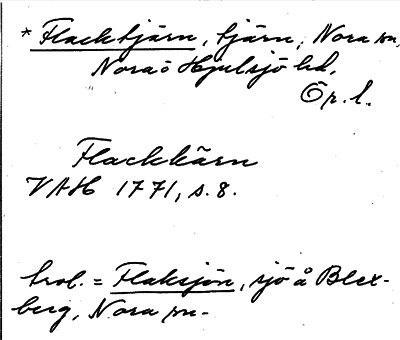 * Flacktjärn, tjärn, Nora sn,
Nora o Hjulsjö hd,
Ör. l.
Flackkärn
VAH 1771, s. 8.
trol. = Flaksjön, sjö å Blex-
berg, Nora sn.